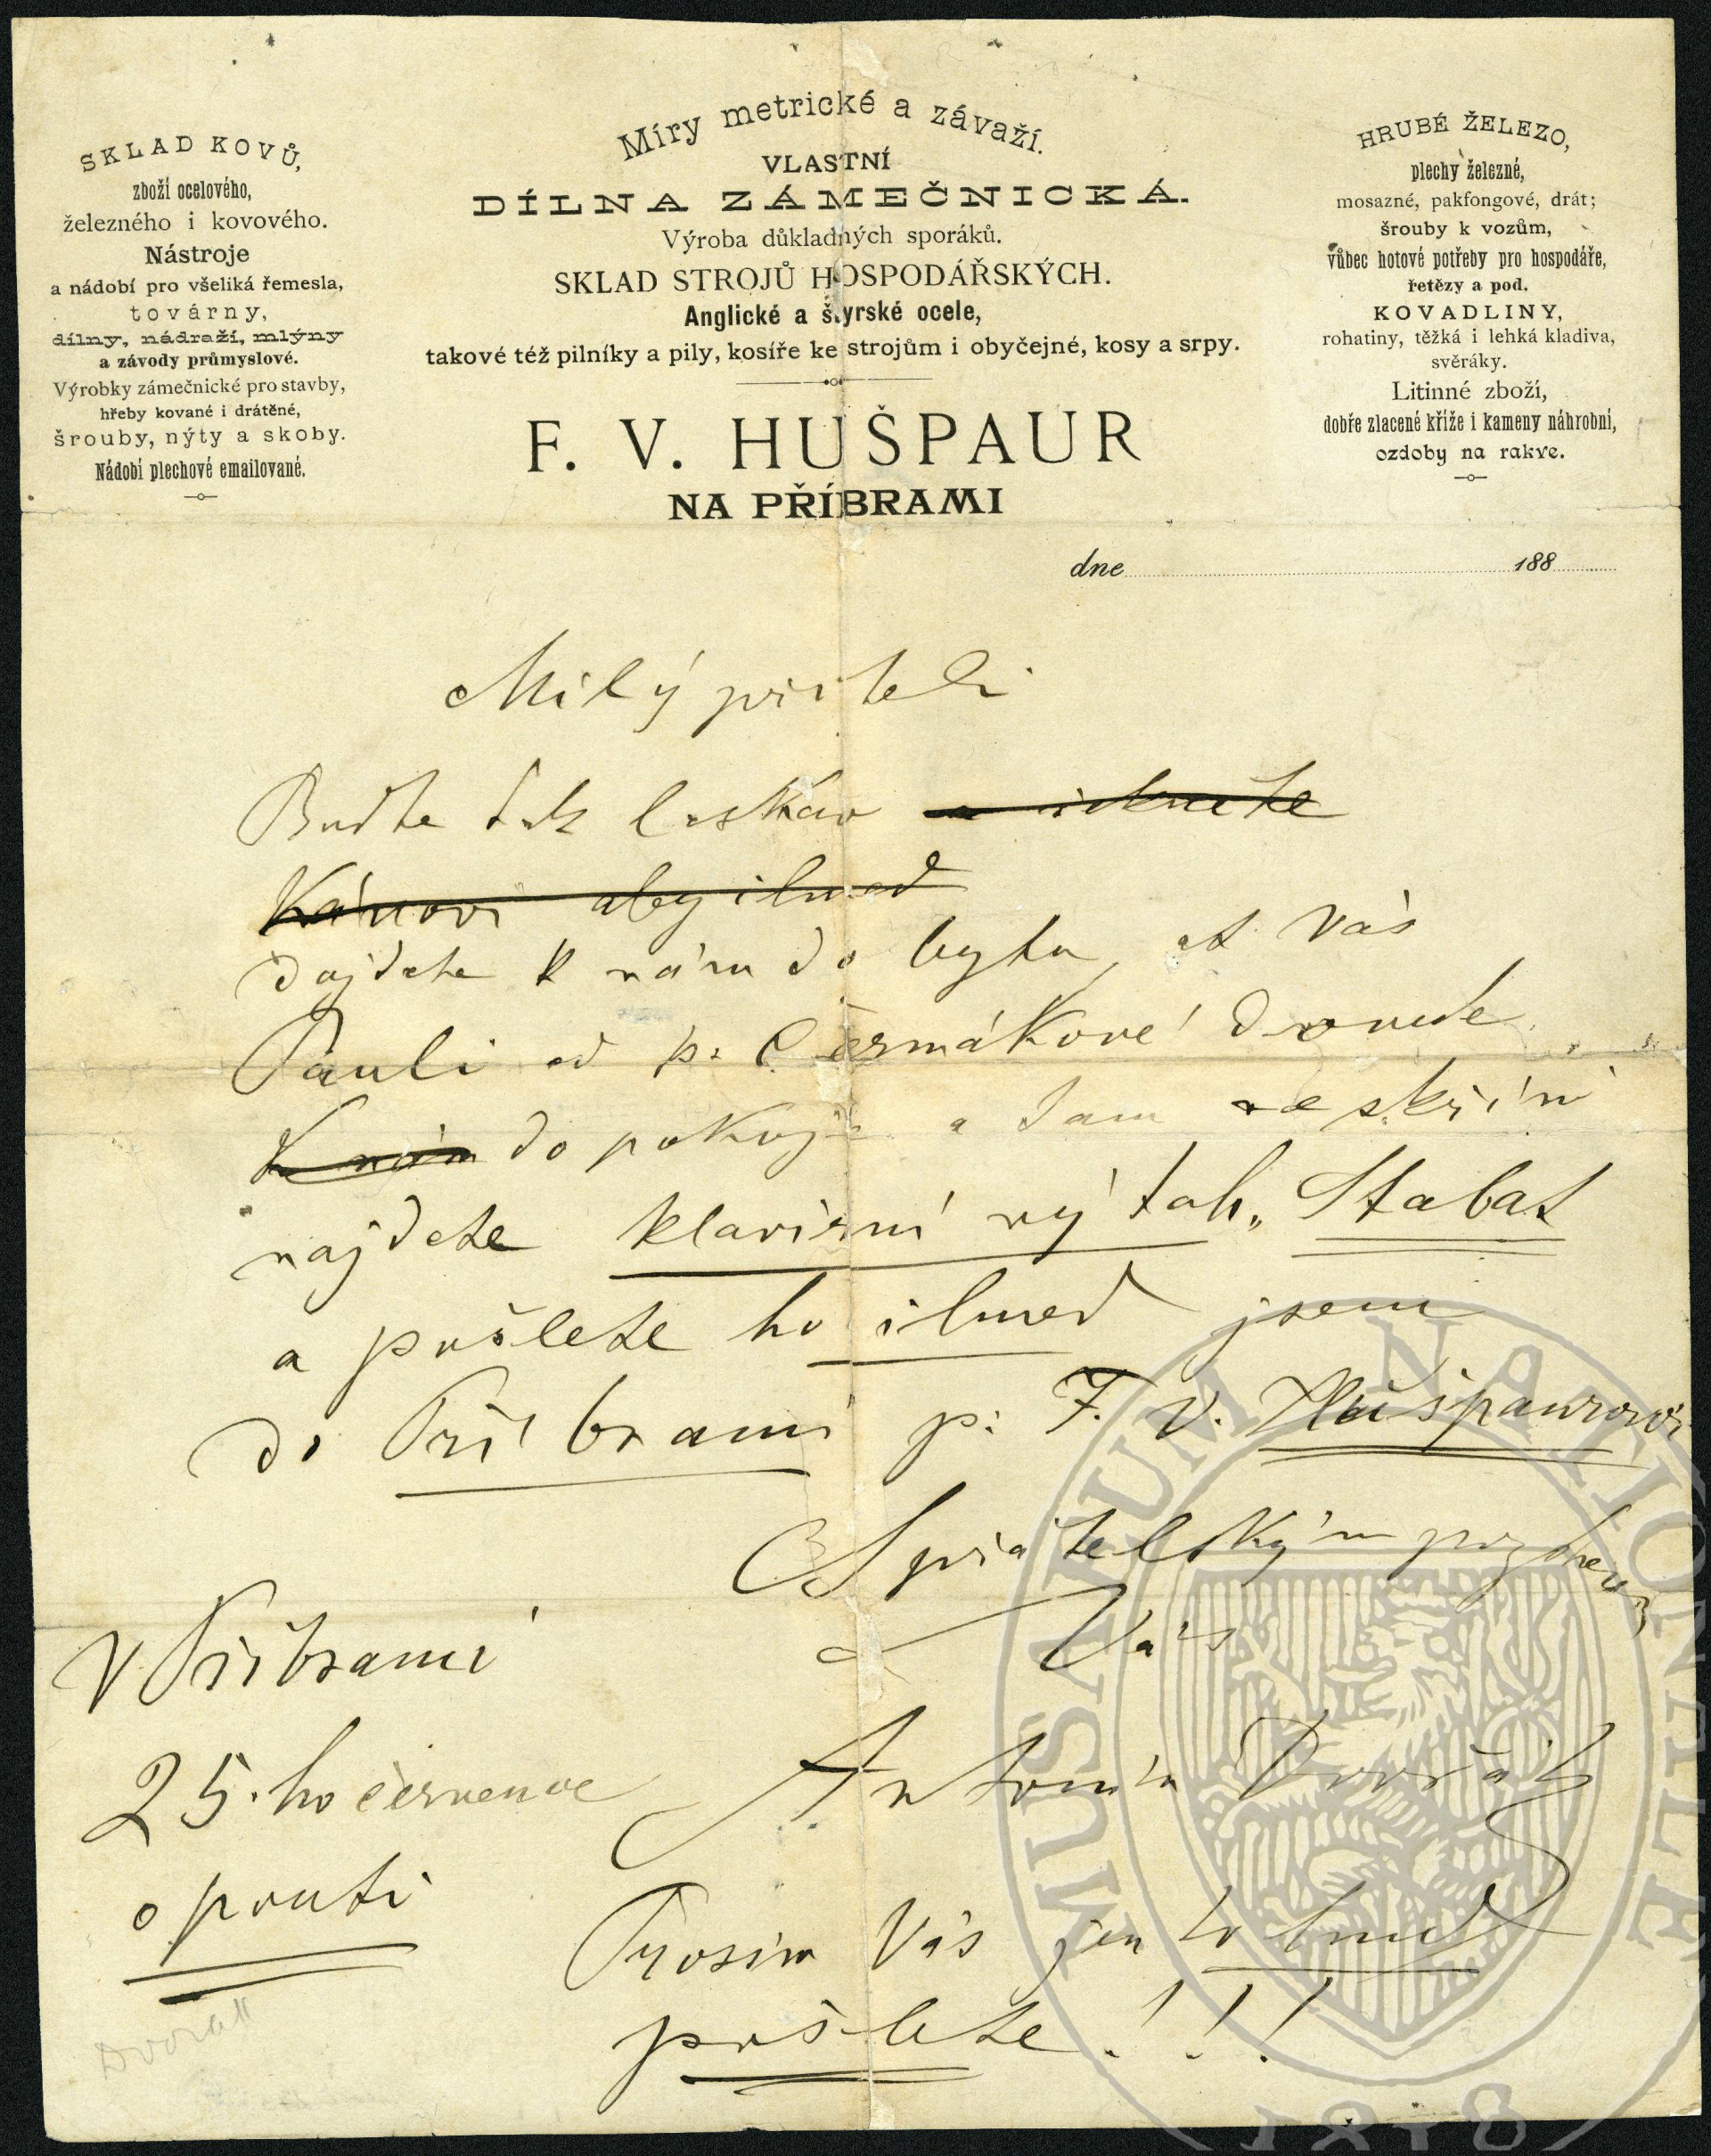 SKLAD KOVŮ,
zboží ocelového,
železného i kovového.
Nástroje
a nádobí pro všeliká řemesla,
továrny,
dílny, nádraží, mlýny
a závody průmyslové.
Výrobky zámečnické pro stavby,
hřeby kované i drátěné,
šrouby, nýty a skoby.
Nádobí plechové emailované.
Míry metrické a závaží.
VLASTNÍ
DÍLNA ZÁMEČNICKÁ.
Výroba důkladných sporáků.
SKLAD STROJŮ HOSPODÁŘSKÝCH.
Anglické a štyrské ocele,
takové též pilníky a pily, kosíře ke strojům i obyčejné, kosy a srpy.
F. V. HUŠPAUR
NA PŘÍBRAMI
HRUBÉ ŽELEZO,
plechy železné,
mosazné, pakfongové, drát;
šrouby k vozům,
vůbec hotové potřeby pro hospodáře,
řetězy a pod.
KOVADLINY,
rohatiny, těžká i lehká kladiva,
svěráky.
Litinné zboží,
dobře zlacené kříže i kameny náhrobní,
ozdoby na rakve.
dne 188
Milý příteli
Buďte tak laskav a
aby ihned
dojdete k nám do bytu, ať Vás
Pauli od p. Čermákové dovede
k nám do pokoje a tam ve skříni
najdete klavírní výtah „Stabat
a pošlete ho ihned sem
do Příbrami p. F. V. Hušpaurovi
S přátelským pozdravem
Váš
Antonín Dvořák
V Příbrami
25.ho července
o pouti
Prosím Vás jen to hned
pošlete!!!
Dvořák
MUSAEUM NATIONALE
1818